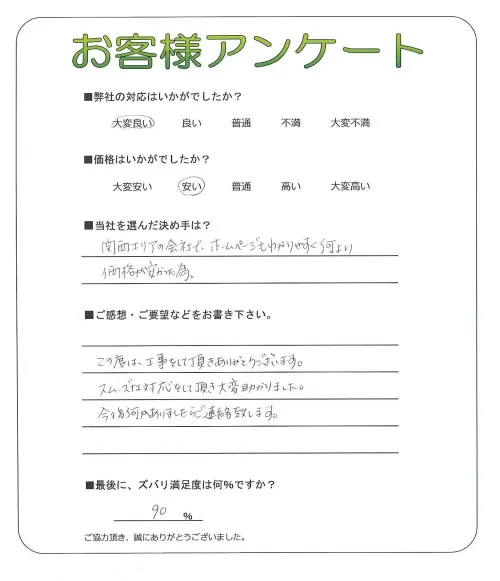 お客様アンケート
■弊社の対応はいかがでしたか？
大変良い 良い 普通 不満 大変不満
■価格はいかがでしたか？
大変安い 安い 普通 高い 大変高い
■当社を選んだ決め手は？
関西エリアの会社で、ホームページもわかりやすく何より
価格が安かった為。
■ご感想・ご要望などをお書き下さい。
この度は、工事をして頂きありがとうございます。
スムーズな対応をして頂き大変助かりました。
今後何かありましたらご連絡致します。
■最後に、ズバリ満足度は何％ですか？
90 %
ご協力頂き、誠にありがとうございました。